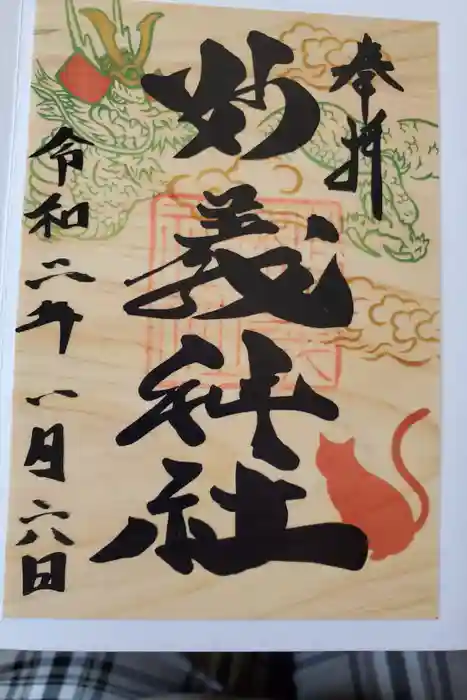 奉拝
妙義神社
令和二年八月六日